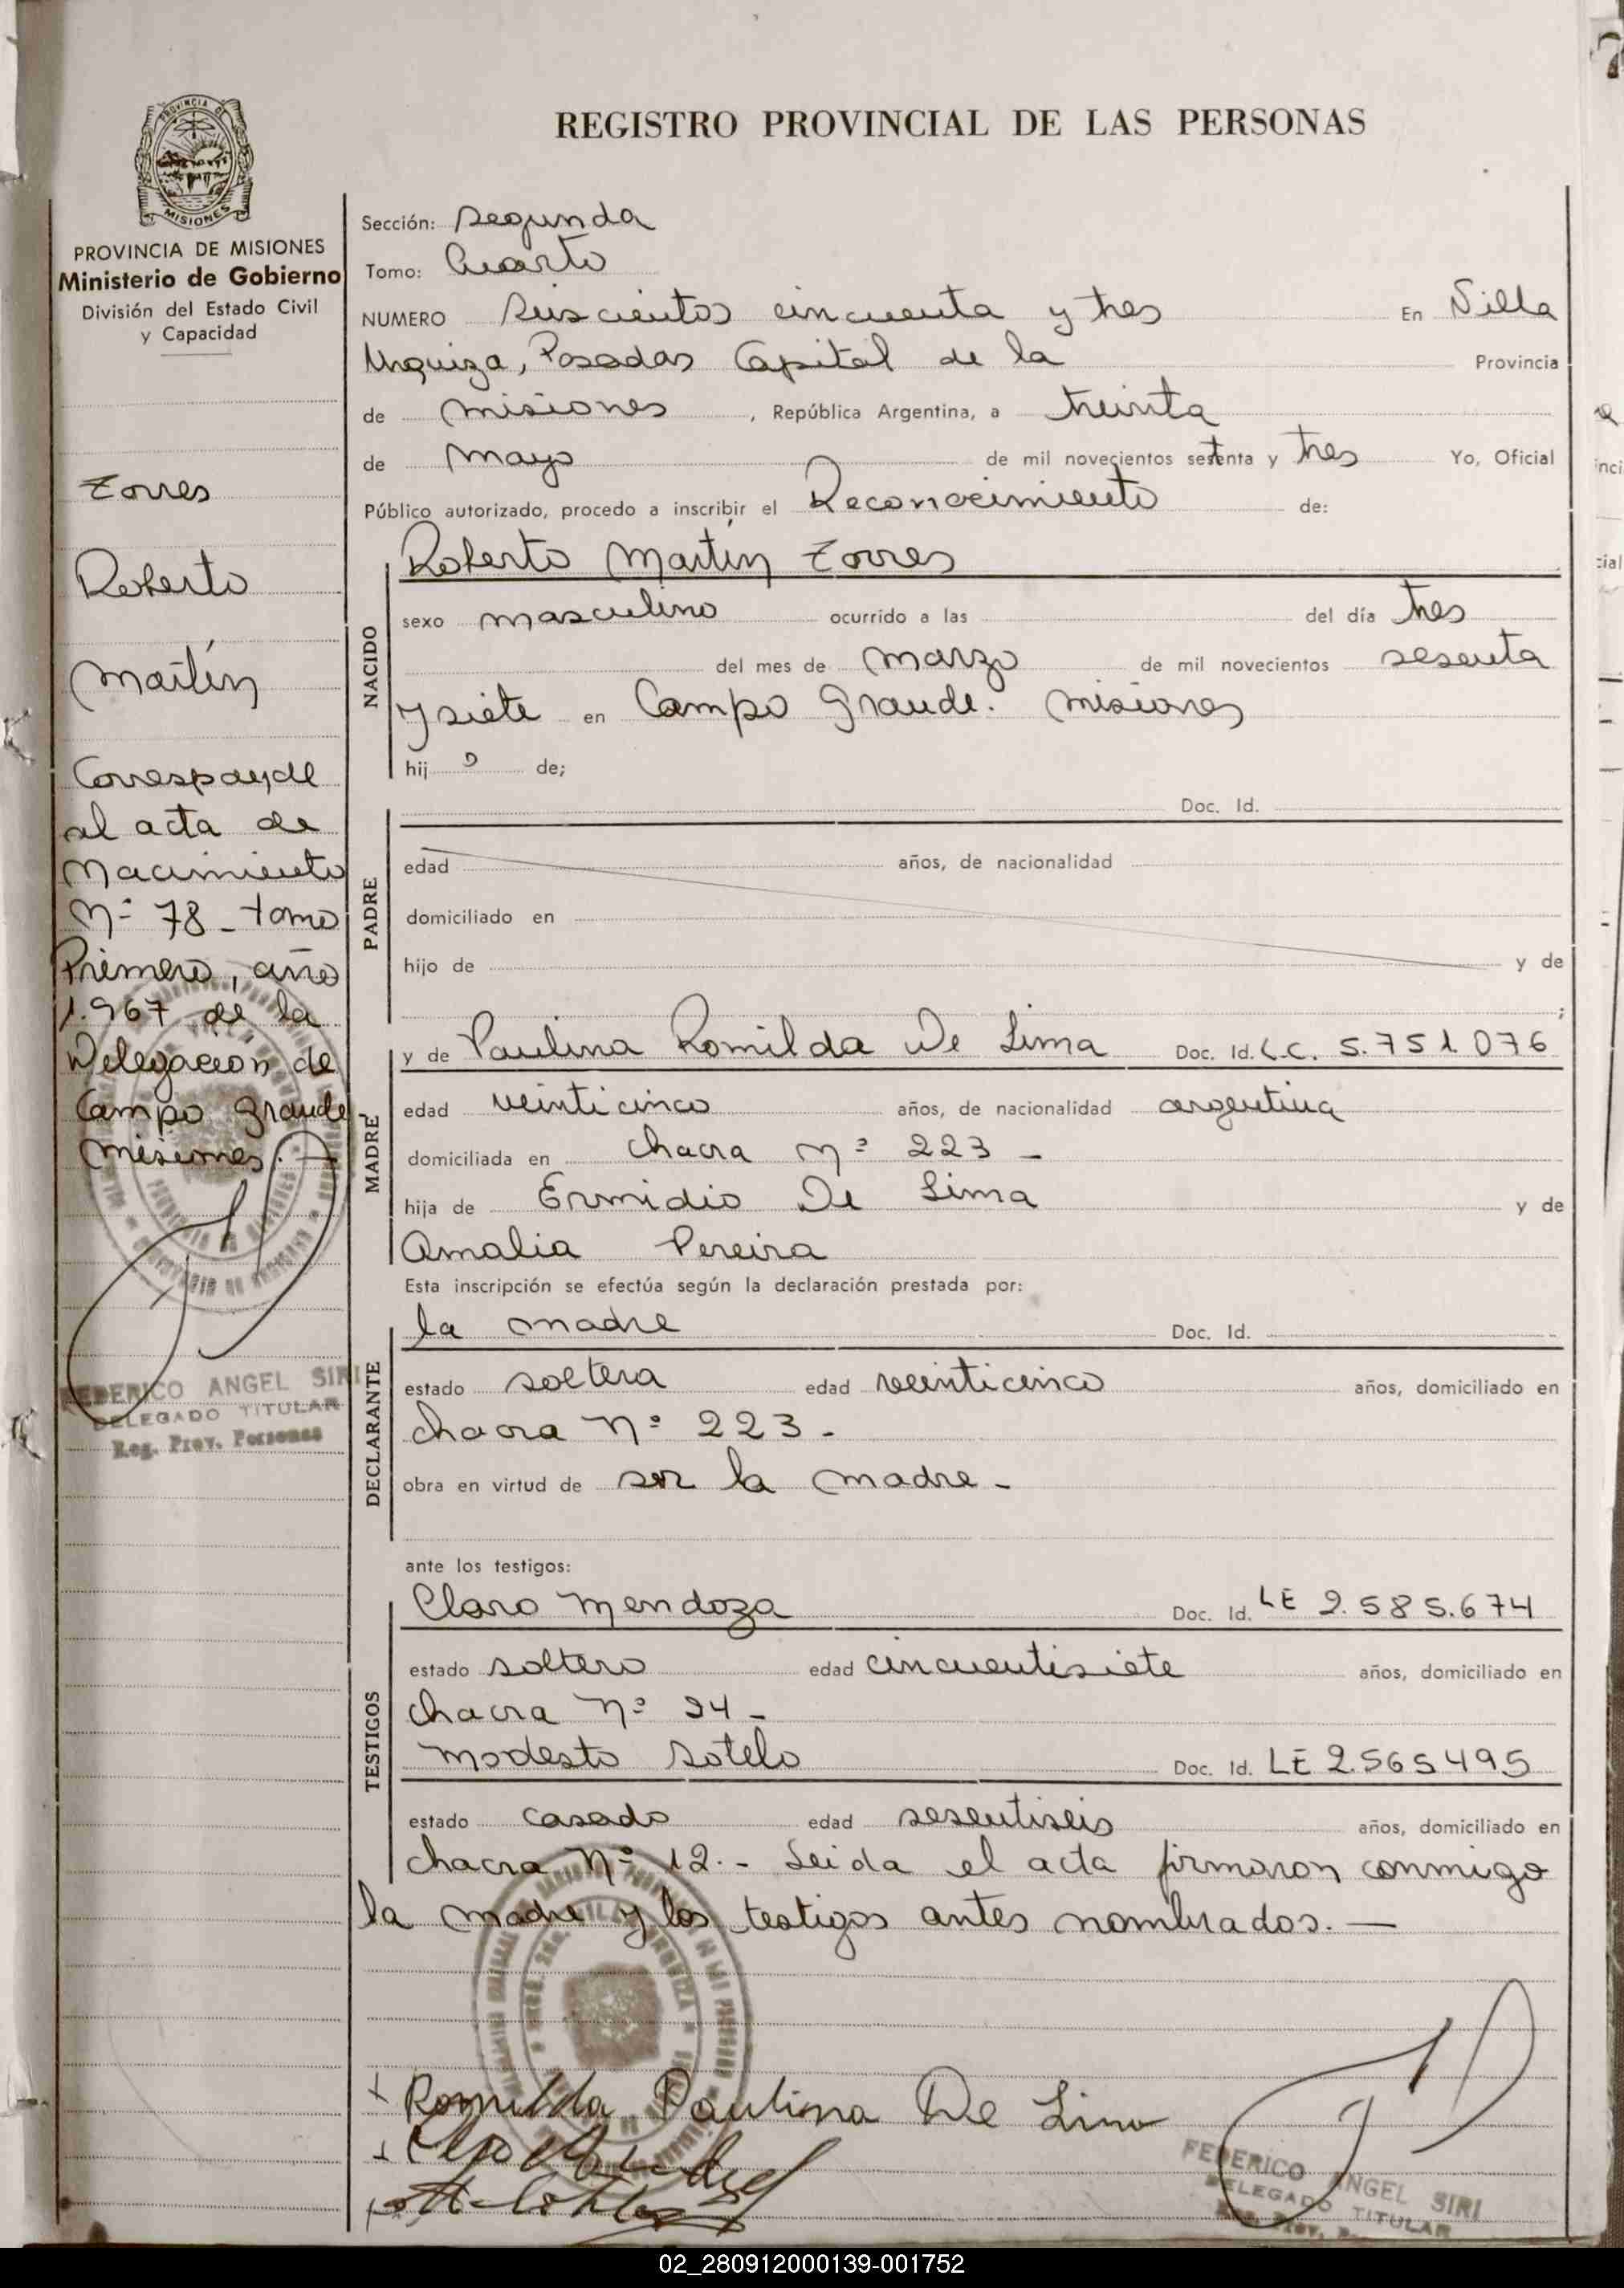 REGISTRO PROVINCIAL DE LAS PERSONAS
PROVINCIA DE
MISIONES
PROVINCIA DE MISIONES
Ministerio de Gobierno
División del Estado Civil
y Capacidad
Torres
Roberto
Martín
Corresponde
al acta de
Nacimiento
Nº 78 - tomo
Primero, año
1.967 de la
Delegación de
Campo Grande
Misiones.-
FEDERICO ANGEL SIRI
DELEGADO TITULAR
Reg. Prov. Personas
Sección: Segunda
Tomo: Cuarto
NUMERO Seiscientos cincuenta y tres En Villa
Urquiza, Posadas Capital de la Provincia
de Misiones, República Argentina, a treinta
de Mayo de mil novecientos setenta y tres Yo, Oficial
Público autorizado, procedo a inscribir el Reconocimiento de:
NACIDO
Roberto Martín Torres
sexo masculino ocurrido a las del día tres
del mes de marzo de mil novecientos sesenta
y siete en Campo Grande. Misiones
hij o de;
PADRE
Doc. Id.
edad años, de nacionalidad
domiciliado en
hijo de y de
;
MADRE
y de Paulina Romilda De Lima Doc. Id. L.C. 5.751.076
edad veinticinco años, de nacionalidad argentina
domiciliada en chacra nº 223 -
hija de Ermidio De Lima y de
Amalia Pereira
Esta inscripción se efectúa según la declaración prestada por:
DECLARANTE
la madre Doc. Id.
estado soltera edad veinticinco años, domiciliado en
chacra Nº 223 -
obra en virtud de ser la madre -
ante los testigos:
TESTIGOS
Claro Mendoza Doc. Id. LE 2.585.674
estado soltero edad cincuentisiete años, domiciliado en
chacra Nº 94 -
Modesto Sotelo Doc. Id. LE 2.565495
estado casado edad sesentiseis años, domiciliado en
chacra Nº 12.- Leida el acta firmaron conmigo
la madre y los testigos antes nombrados. —
Romilda Paulina De Lima
FEDERICO ANGEL SIRI
DELEGADO TITULAR
02_280912000139-001752